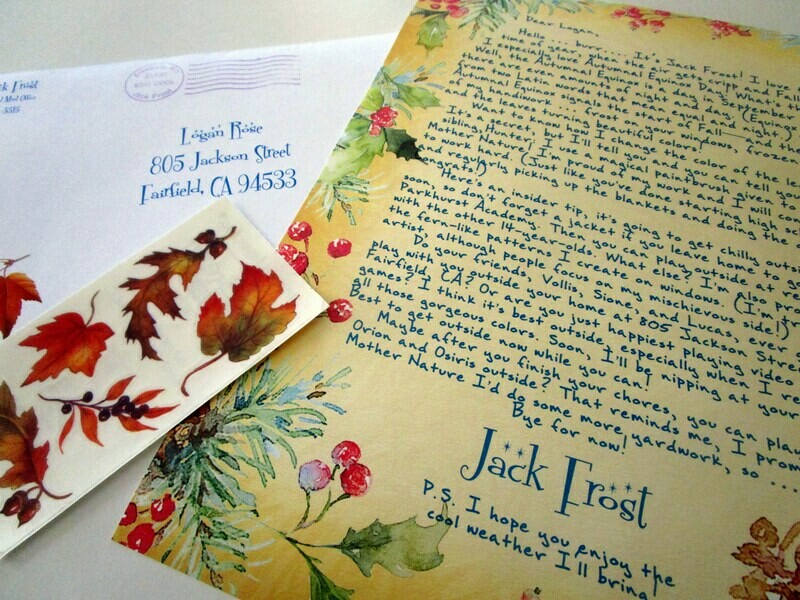 ck Frost
Mail Office
3515
Logan Rose
805 Jackson Street
Fairfield, CA 94533
Dear Logan,
Hello ... burr.... It's Jack Frost! I love
time of year, when the air gets crisp and
I especially love Autumnal Equinox Day. What's
Well, the Autumnal Equinox is a day in September
there's an even amount of night and day.
from two Latin words of equal and night.)
Autumnal Equinox signifies the start of Fall—and
of my handiwork of the season
the leaves turning beautiful colors!
Want to know how I change the color of the
It's a secret, but I'll tell you and you can tell your
sibling, Hunter. I use a magical paintbrush given
Mother Nature! I'm proud of my work and I will con
to work hard. (Just like you've done starting high sc
and regularly picking up the blankets and doing the
ongrats!)
Here's an insider tip, it's going to get chilly outs
soon, so don't forget a jacket if you leave home to go
Parkhurst Academy. Then, you can play outside at re
with the other 14-year-olds. What else? I'm also pro
the fern-like patterns I create on windows. (I'm
artist, although people focus on my mischievous side!)
Do your friends, Vollis, Sione, and Lucas, ever
play with you outside your home at 805 Jackson Stree
Fairfield, CA? Or are you just happiest playing video
games? I think it's best outside, especially when I re
all those gorgeous colors. Soon, I'll be nipping at your
Best to get outside now while you can!
Maybe after you finish your chores, you can play
Orion and Osiris outside? That reminds me, I prom
Mother Nature I'd do some more yardwork, so ....
Bye for now!
Jack Frost
P.S. I hope you enjoy the
cool weather I'll bring